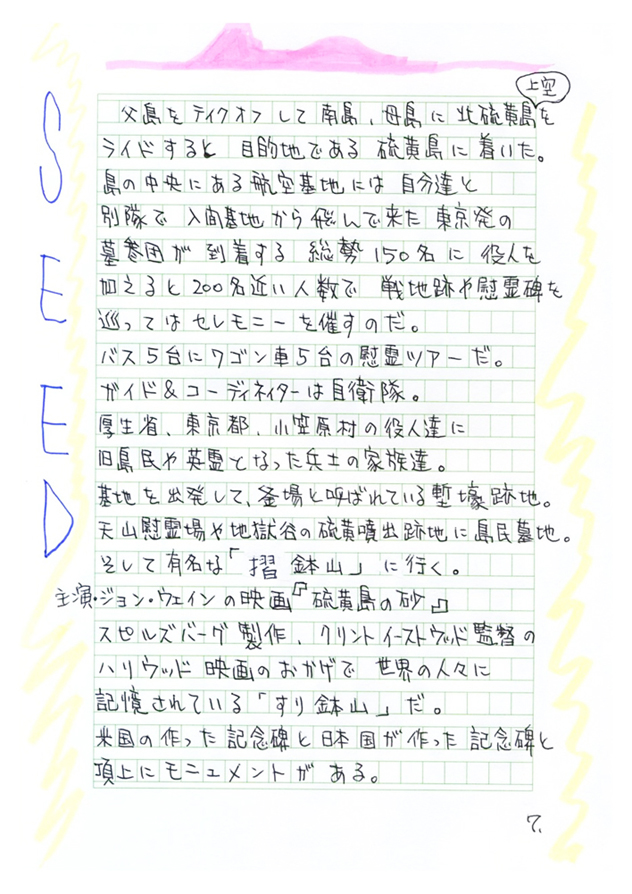 SEED
上空
父島をテイクオフして南島、母島に北硫黄島を
ライドすると 目的地である 硫黄島に着いた。
島の中央にある航空基地には 自分達と
別隊で 入間基地から飛んで来た 東京発の
墓参団が 到着する 総勢150名に 役人を
加えると200名近い人数で 戦地跡や慰霊碑を
巡ってはセレモニーを催すのだ。
バス5台にワゴン車5台の慰霊ツアーだ。
ガイド&コーディネイターは自衛隊。
厚生省、東京都、小笠原村の役人達に
旧島民や英霊となった兵士の家族達。
基地を出発して、釜場と呼ばれている塹壕跡地。
天山慰霊場や地獄谷の硫黄噴出跡地に島民墓地。
そして有名な「摺鉢山」に行く。
主演・ジョン・ウェインの映画『硫黄島の砂』
スピルズバーグ製作、クリントイーストウッド監督の
ハリウッド映画のおかげで 世界の人々に
記憶されている「すり鉢山」だ。
米国の作った記念碑と日本国が作った記念碑と
頂上にモニュメントがある。
7.